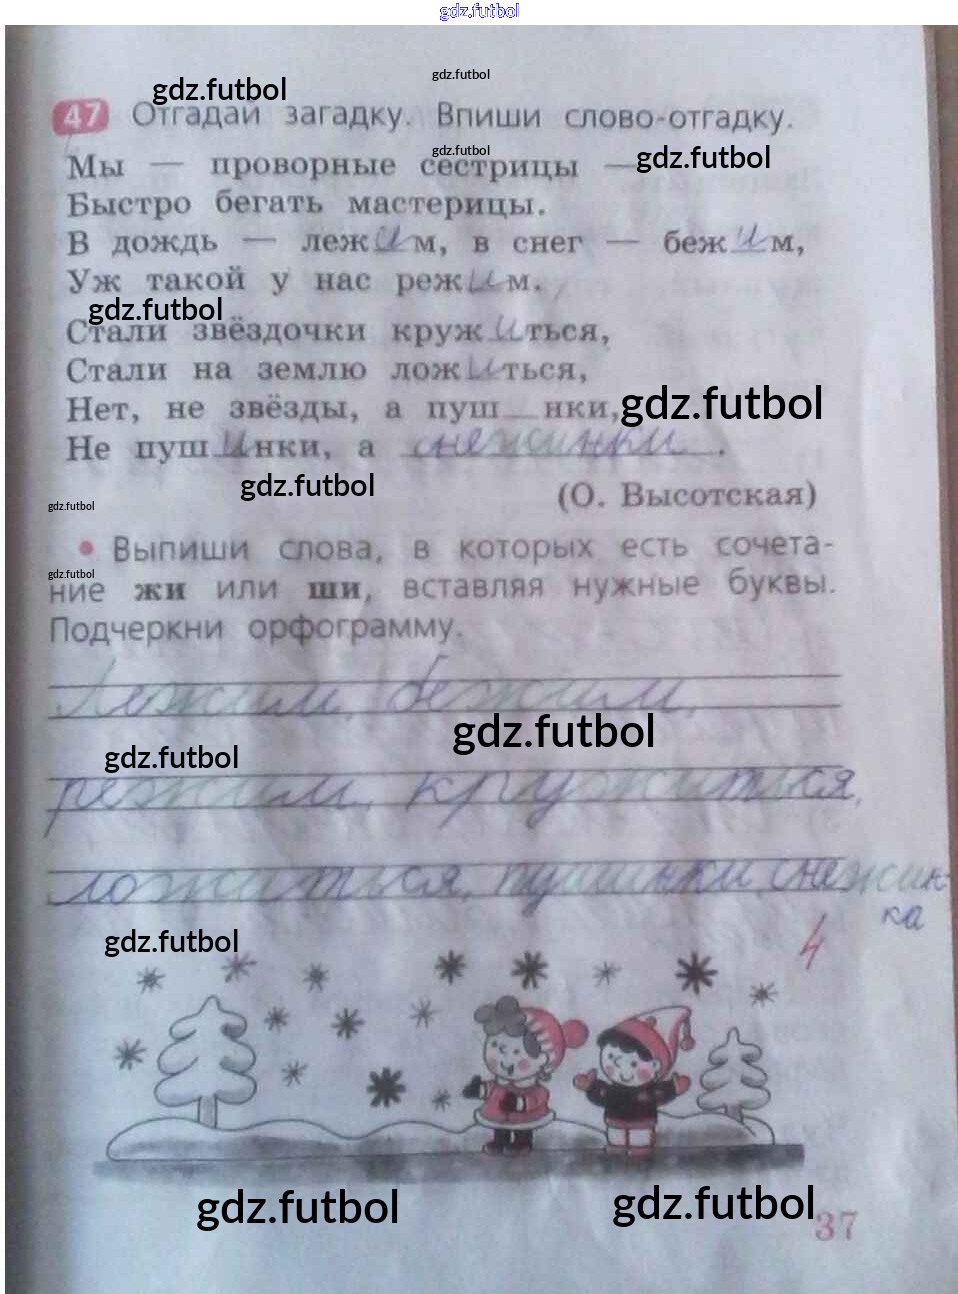 gdz.futbol
gdz.futbol
gdz.futbol
47 Отгадай загадку. Впиши слово-отгадку.
gdz.futbol
gdz.futbol
Мы — проворные сестрицы —
Быстро бегать мастерицы.
В дождь — лежим, в снег — бежим,
Уж такой у нас режим.
gdz.futbol
Стали звёздочки кружиться,
Стали на землю ложиться,
Нет, не звёзды, а пуш_нки,
gdz.futbol
Не пушинки, а снежинки.
gdz.futbol
(О. Высотская)
gdz.futbol
• Выпиши слова, в которых есть сочета-
gdz.futbol
ние жи или ши, вставляя нужные буквы.
Подчеркни орфограмму.
Лежим, бежим,
gdz.futbol
gdz.futbol
режим, кружиться,
ложиться, пушинки, снежин-
ка
4
gdz.futbol
gdz.futbol
gdz.futbol
37